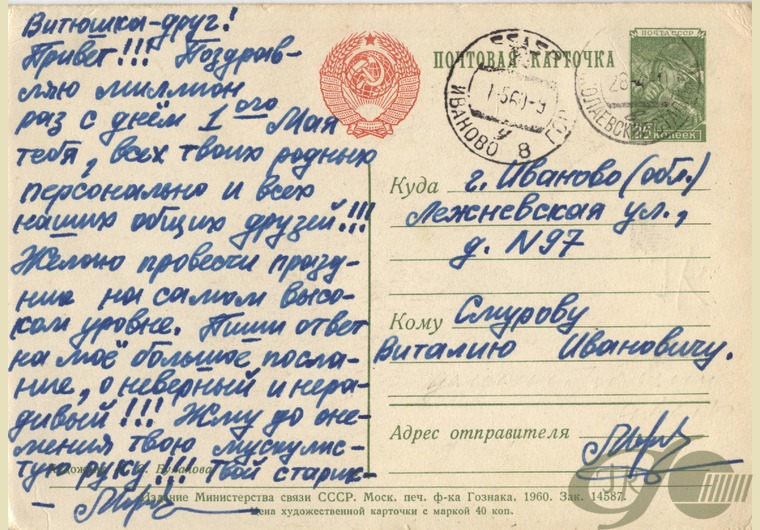 Витюшка-друг!
Привет!!! Поздрав-
ляю миллион
раз с днём 1ого Мая
тебя, всех твоих родных
персонально и всех
наших общих друзей!!!
Желаю провести празд-
ник на самом высо-
ком уровне. Пиши ответ
на моё большое посла-
ние, о неверный и нера-
дивый!!! Жму до оне-
мения твою мускулис-
тую руку!!! Твой старик-
ПОЧТОВАЯ КАРТОЧКА
ПОЧТА СССР
25 КОПЕЕК
ИВАНОВО 8
Куда г. Иваново (обл.)
Лежневская ул.,
д. N97
Кому Смурову
Виталию Ивановичу.
Адрес отправителя
Издание Министерства связи СССР. Моск. печ. ф-ка Гознака. 1960. Зак. 14587.
Цена художественной карточки с маркой 40 коп.